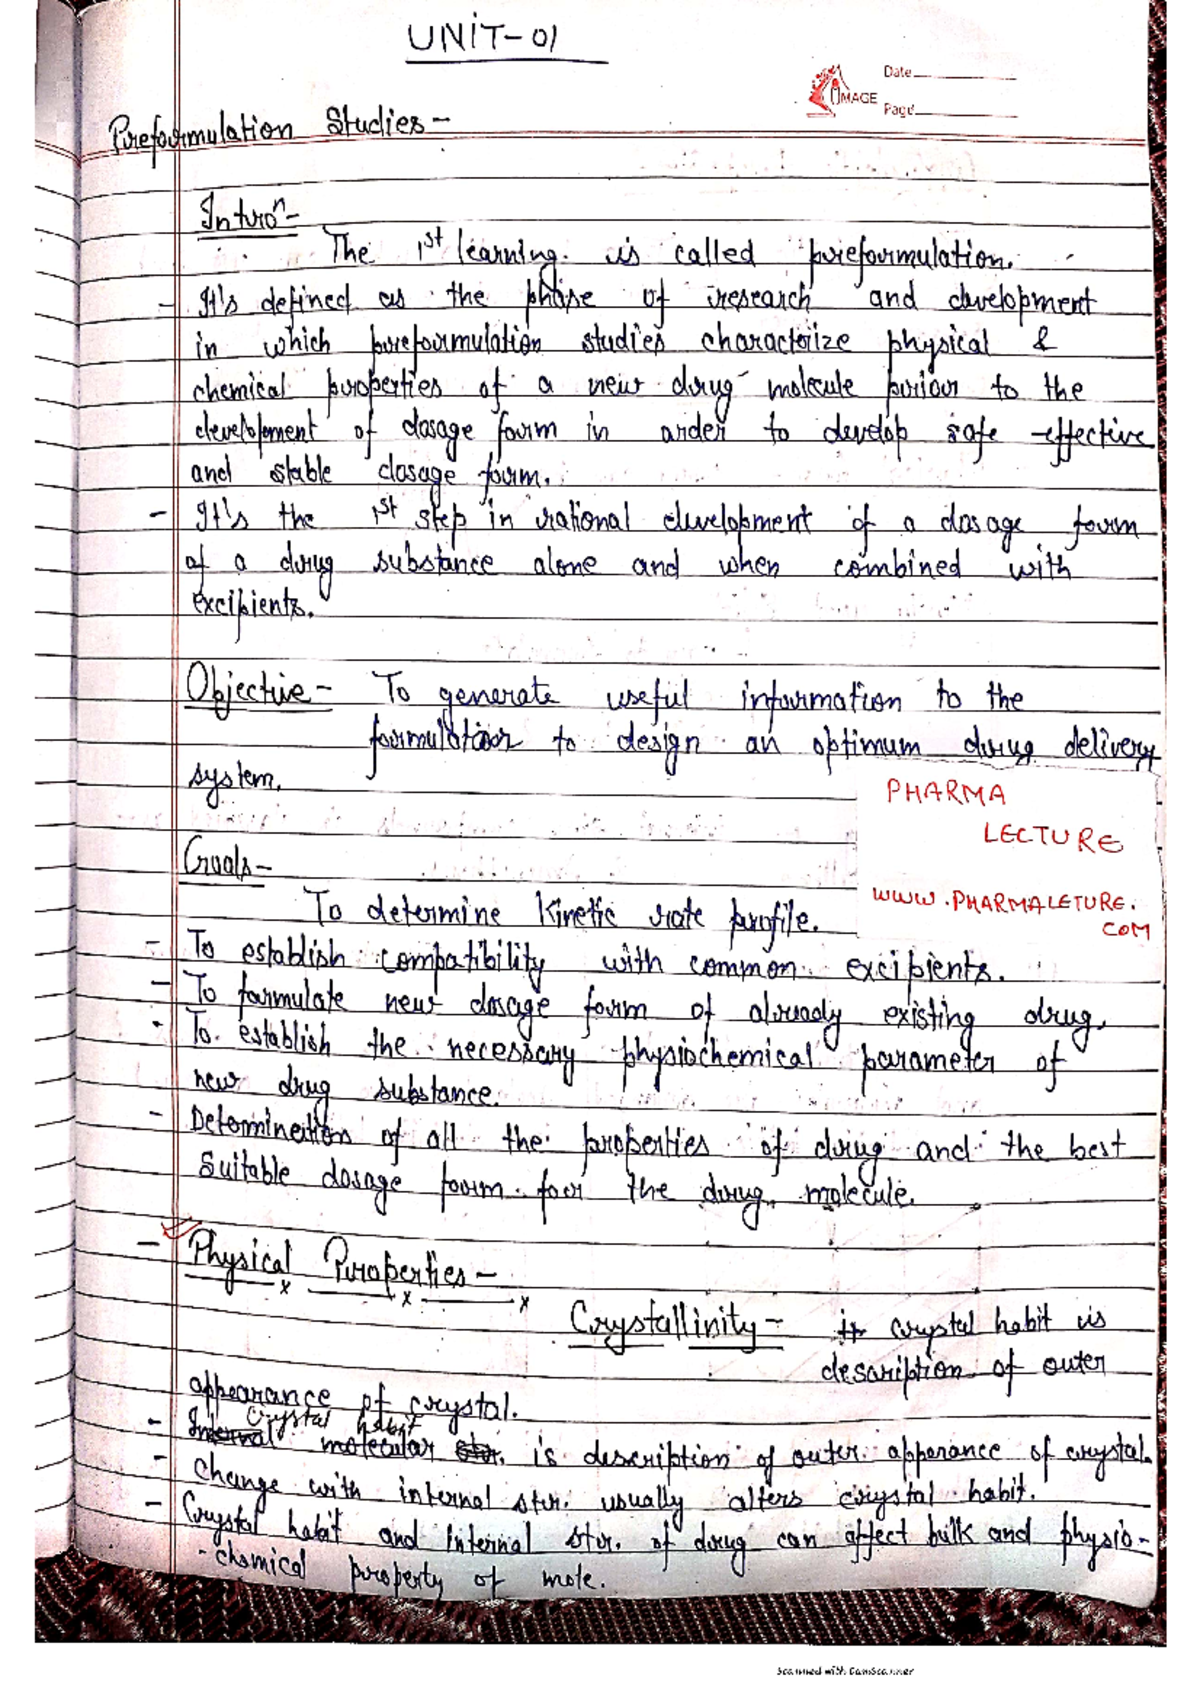 UNIT-01
Date
IMAGE
Page
Preformulation Studies -
Intro^n -
The 1st learning is called preformulation.
- It's defined as the phase of research and development
in which preformulation studies characterize physical &
chemical properties of a new drug molecule priour to the
development of dosage form in order to develop safe effective
and stable dosage form.
- It's the 1st step in rational development of a dosage form
of a drug substance alone and when combined with
excipients.
Objective - To generate useful information to the
formulator to design an optimum drug delivery
system.
PHARMA
LECTURE
WWW.PHARMALETURE.
COM
Goals -
To determine Kinetic rate profile.
- To establish compatibility with common excipients.
- To formulate new dosage form of already existing drug.
- To establish the necessary physiochemical parameter of
new drug substance.
- Determination of all the properties of drug and the best
suitable dosage form for the drug molecule.
- Physical Properties -
Crystallinity - crystal habit is
description of outer
appearance of crystal.
Crystal habit
- Internal molecular str. is description of outer apperance of crystal.
- Change with internal str. usually alters crystal habit.
- Crystal habit and Internal str. of drug can affect bulk and physio-
- chemical property of mole.
Scanned with CamScanner